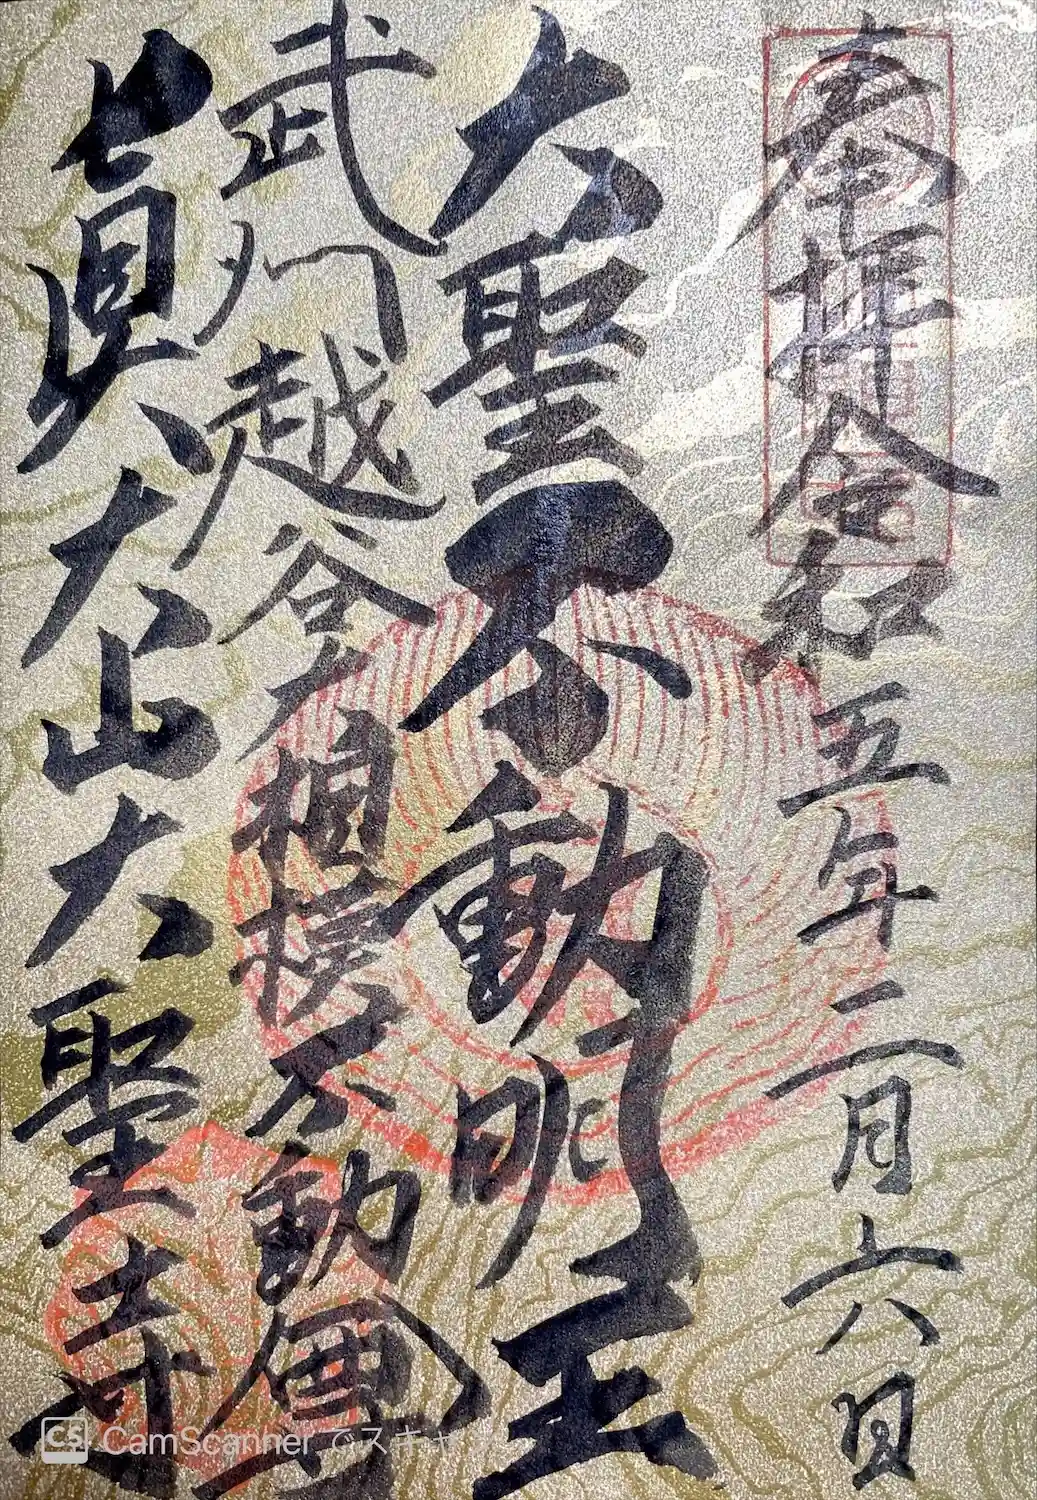 奉拝 令和五年二月六日
大聖不動明王
武州越谷大相模不動尊
眞大山大聖寺
CS CamScanner でスキャン